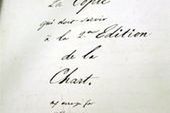 La Copie
qui doit servir
à la 2me Edition
de la
Chart.